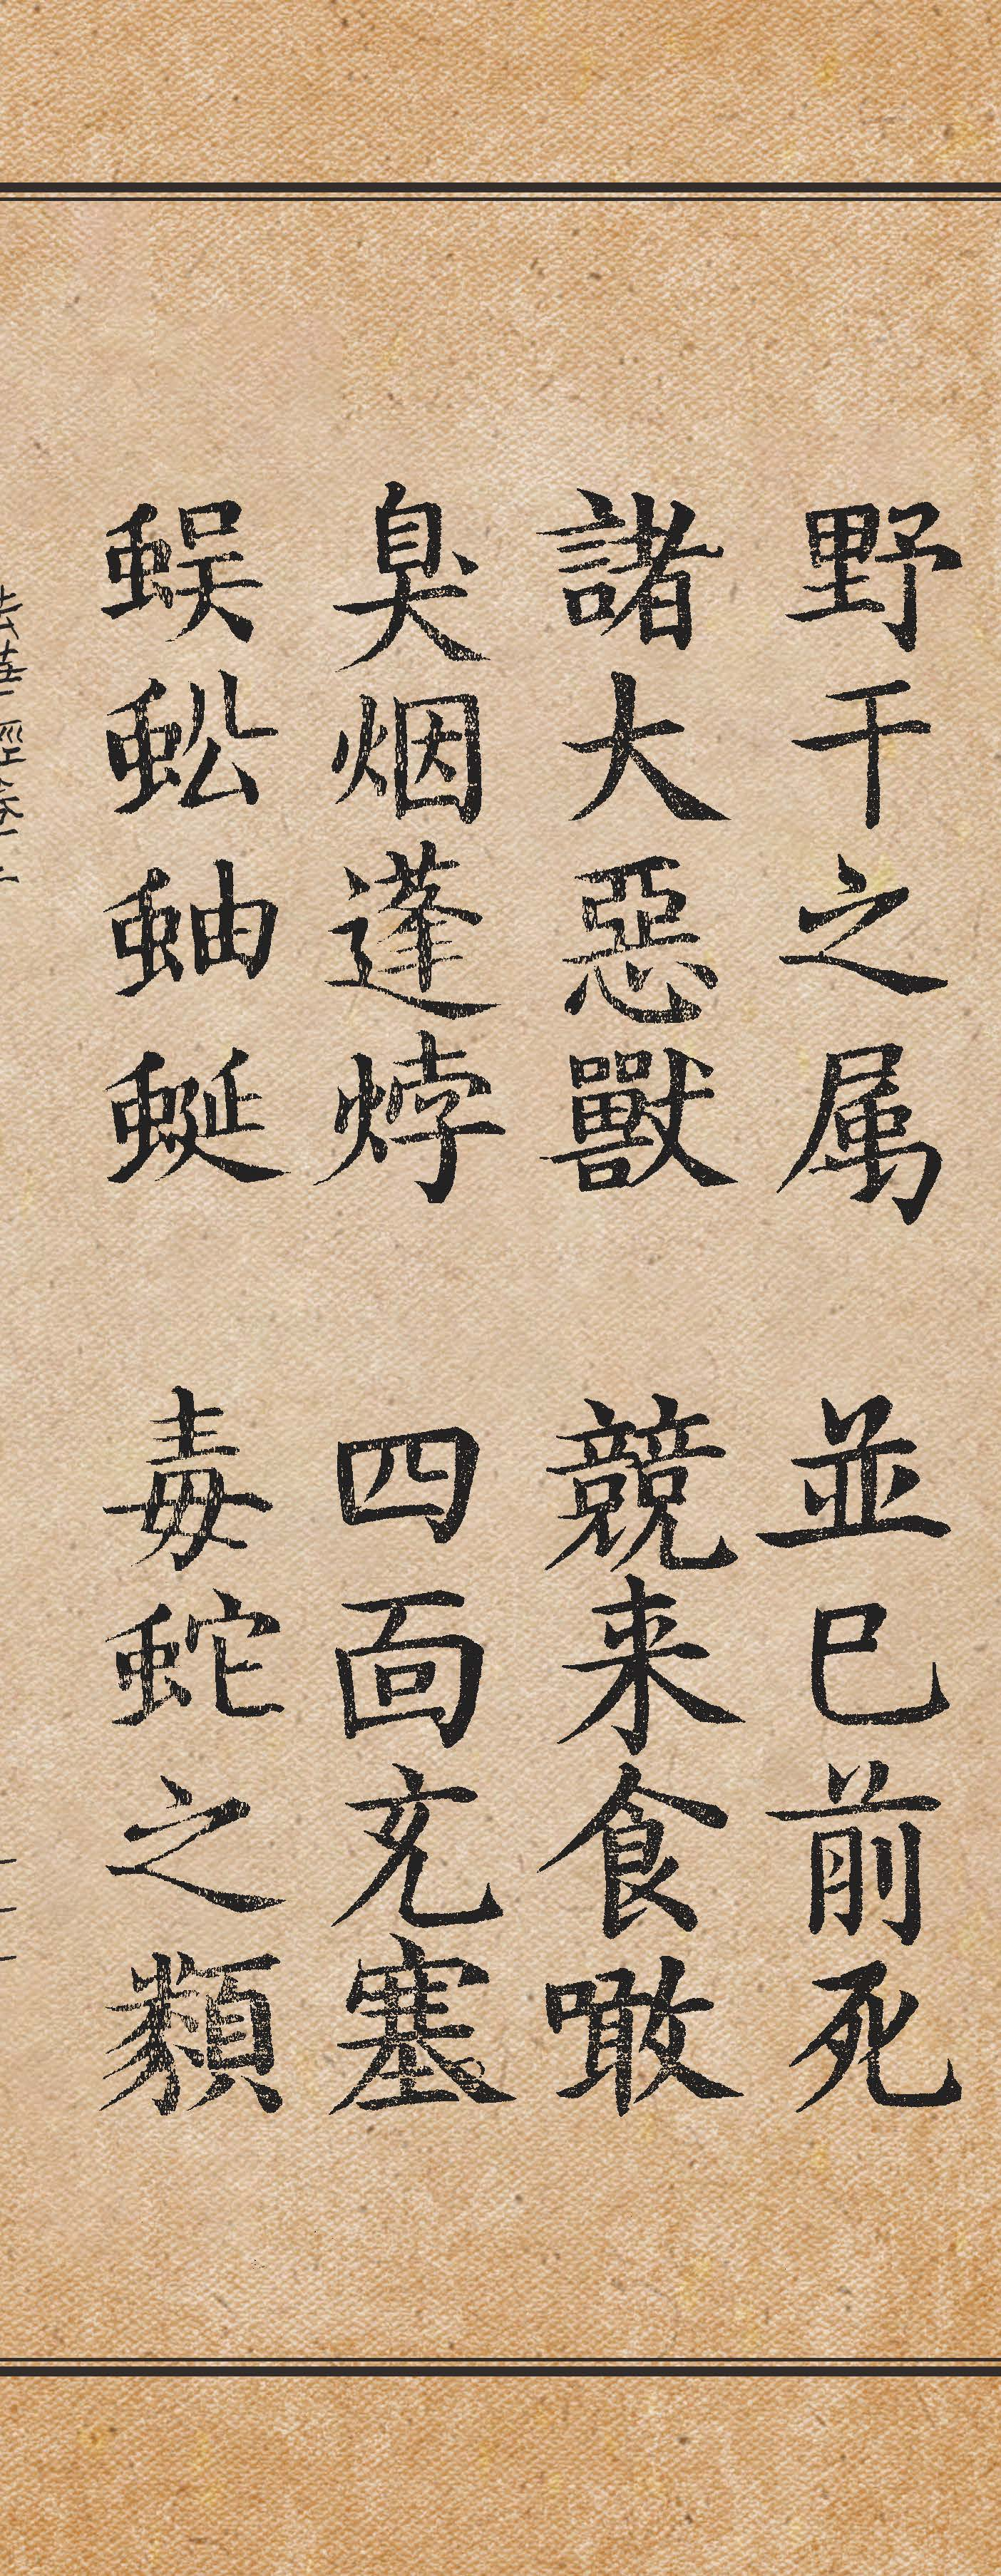 野干之属 並已前死
諸大惡獸 競来食噉
臭烟蓬㶿 四面充塞
蜈蚣蚰蜒 毒蛇之類